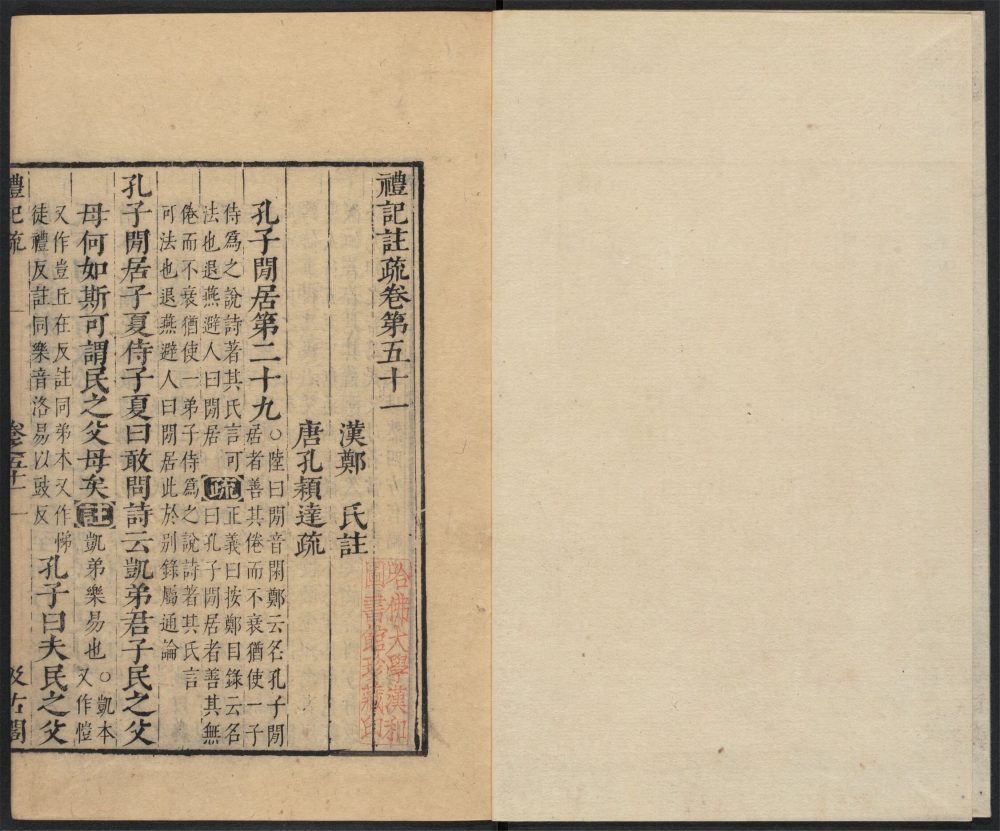 禮記註疏卷第五十一
漢鄭　氏註
唐孔穎達疏
哈佛大學漢和
圖書館珍藏印
孔子閒居第二十九
○陸曰閒音閑鄭云名孔子閒
居者善其倦而不衰猶使一子
侍爲之說詩著其氏言可
法也退燕避人曰閒居
疏
正義曰按鄭目錄云名
曰孔子閒居者善其無
倦而不衰猶使一弟子侍爲之說詩著其氏言
可法也退燕避人曰閒居此於别錄屬通論
孔子閒居子夏侍子夏曰敢問詩云凱弟君子民之父
母何如斯可謂民之父母矣
註
凱弟樂易也
○凱本
又作愷
又作豈丘在反註同弟本又作悌
徒禮反註同樂音洛易以豉反
孔子曰夫民之父
禮記疏
卷五十一
一
汲古閣